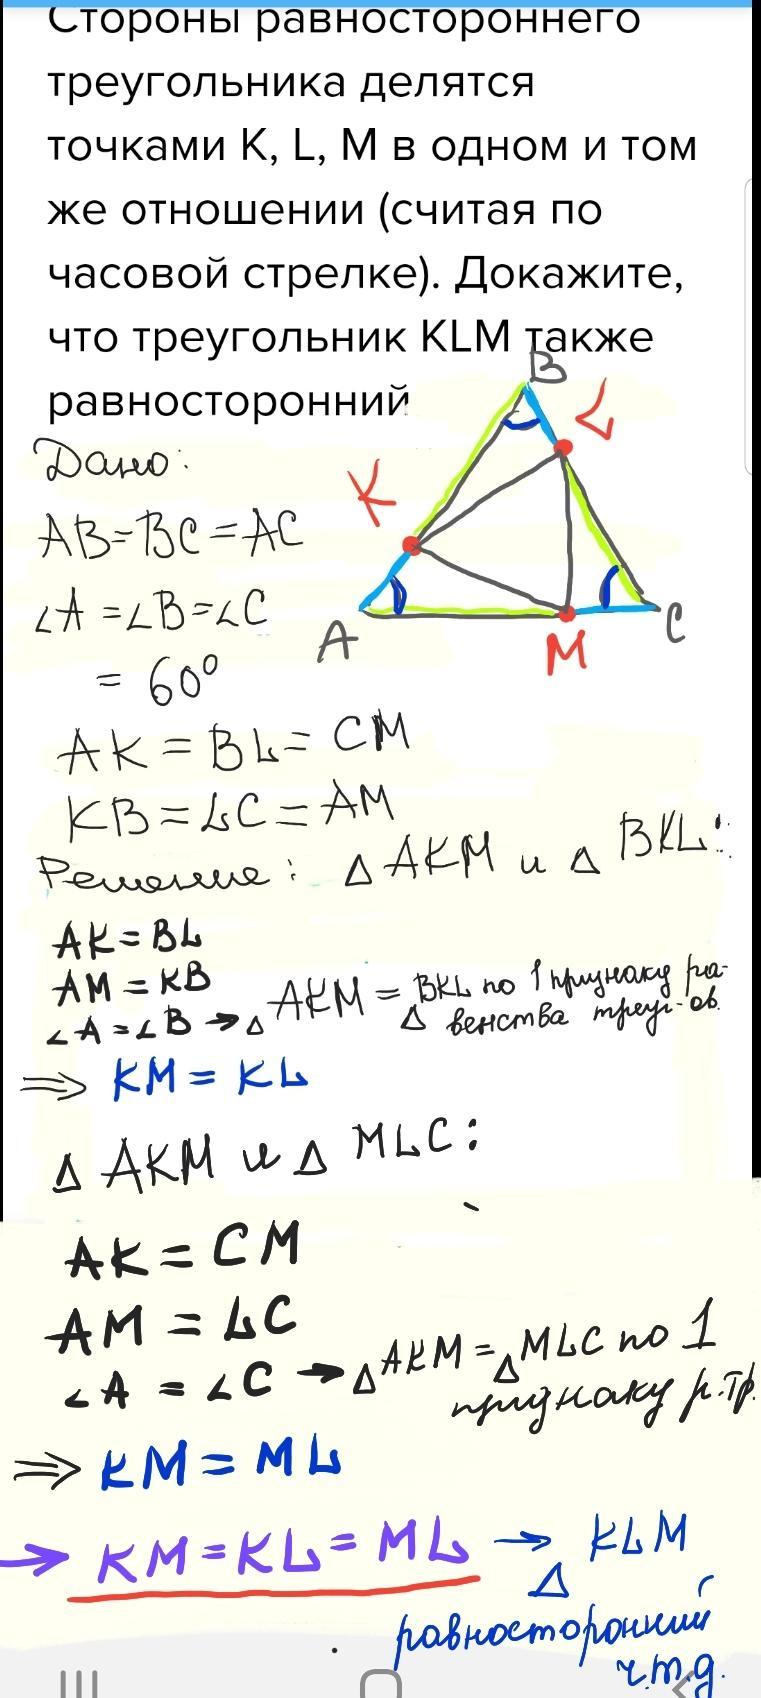 Стороны равностороннего
треугольника делятся
точками K, L, M в одном и том
же отношении (считая по
часовой стрелке). Докажите,
что треугольник KLM также
равносторонний
B
L
K
A
M
C
Дано:
AB=BC=AC
∠A=∠B=∠C
= 60°
AK=BL=CM
KB=LC=AM
Решение: Δ AKM и Δ BKL:
AK=BL
AM=KB
∠A=∠B → Δ AKM = Δ BKL по 1 признаку ра-
венства треуг-ов.
⇒ KM=KL
Δ AKM и Δ MLC:
AK=CM
AM=LC
∠A=∠C → Δ AKM = Δ MLC по 1
признаку р.тр.
⇒ KM=ML
→ KM=KL=ML → Δ KLM
равносторонний
ч.т.д.